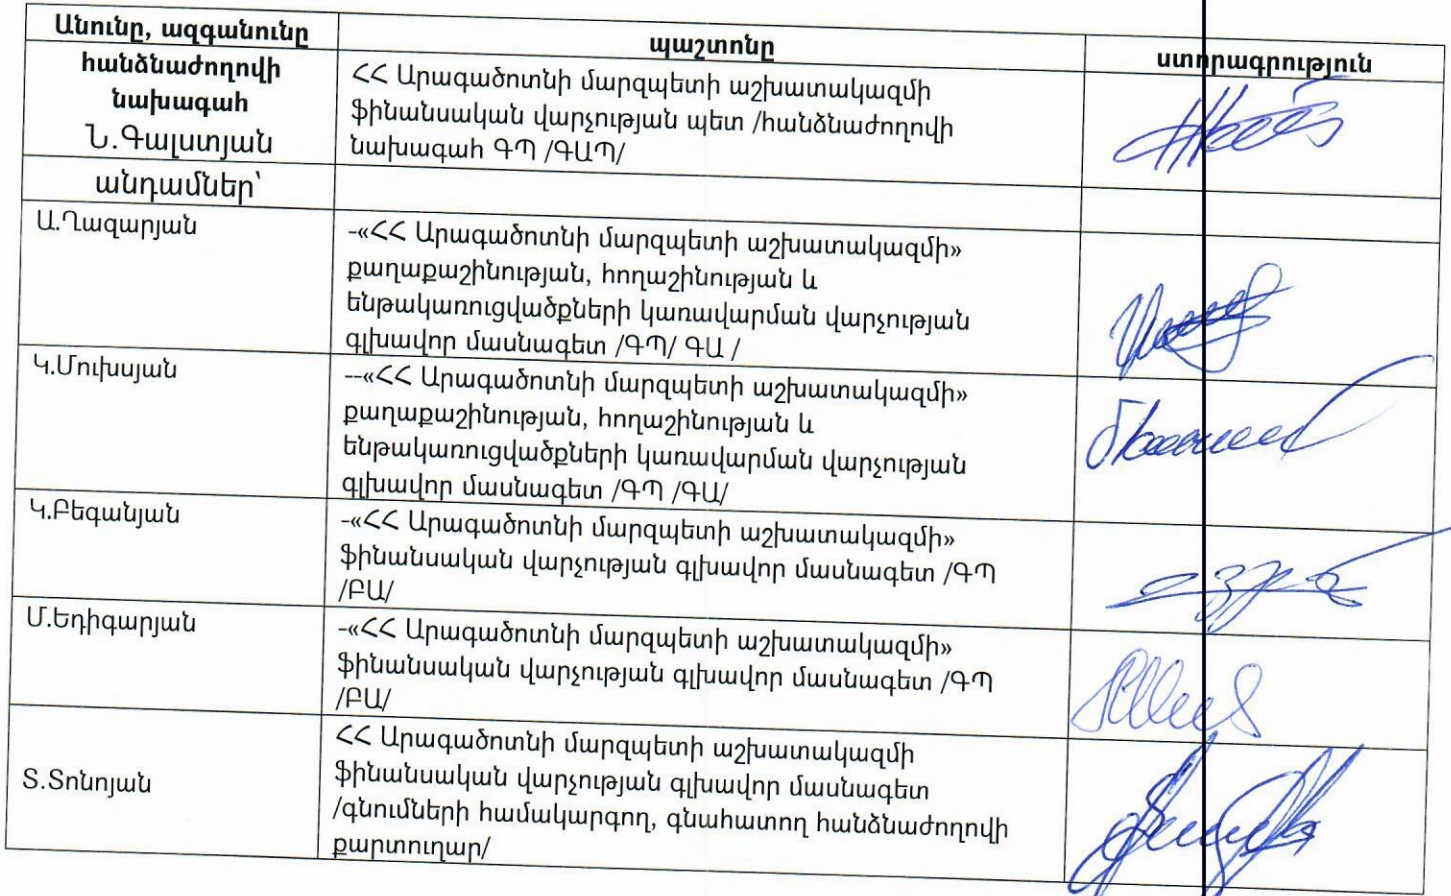 Անունը, ազգանունը պաշտոնը ստորագրություն
հանձնաժողովի
նախագահ
Ն.Գալստյան
ՀՀ Արագածոտնի մարզպետի աշխատակազմի
ֆինանսական վարչության պետ /հանձնաժողովի
նախագահ ԳՊ /ԳԱՊ/
անդամներ՝
Ա.Ղազարյան
-«ՀՀ Արագածոտնի մարզպետի աշխատակազմի»
քաղաքաշինության, հողաշինության և
ենթակառուցվածքների կառավարման վարչության
գլխավոր մասնագետ /ԳՊ/ ԳԱ /
Կ.Մուխսյան
--«ՀՀ Արագածոտնի մարզպետի աշխատակազմի»
քաղաքաշինության, հողաշինության և
ենթակառուցվածքների կառավարման վարչության
գլխավոր մասնագետ /ԳՊ /ԳԱ/
Կ.Բեգանյան
-«ՀՀ Արագածոտնի մարզպետի աշխատակազմի»
ֆինանսական վարչության գլխավոր մասնագետ /ԳՊ
/ԲԱ/
Մ.Եդիգարյան
-«ՀՀ Արագածոտնի մարզպետի աշխատակազմի»
ֆինանսական վարչության գլխավոր մասնագետ /ԳՊ
/ԲԱ/
Տ.Տոնոյան
ՀՀ Արագածոտնի մարզպետի աշխատակազմի
ֆինանսական վարչության գլխավոր մասնագետ
/գնումների համակարգող, գնահատող հանձնաժողովի
քարտուղար/